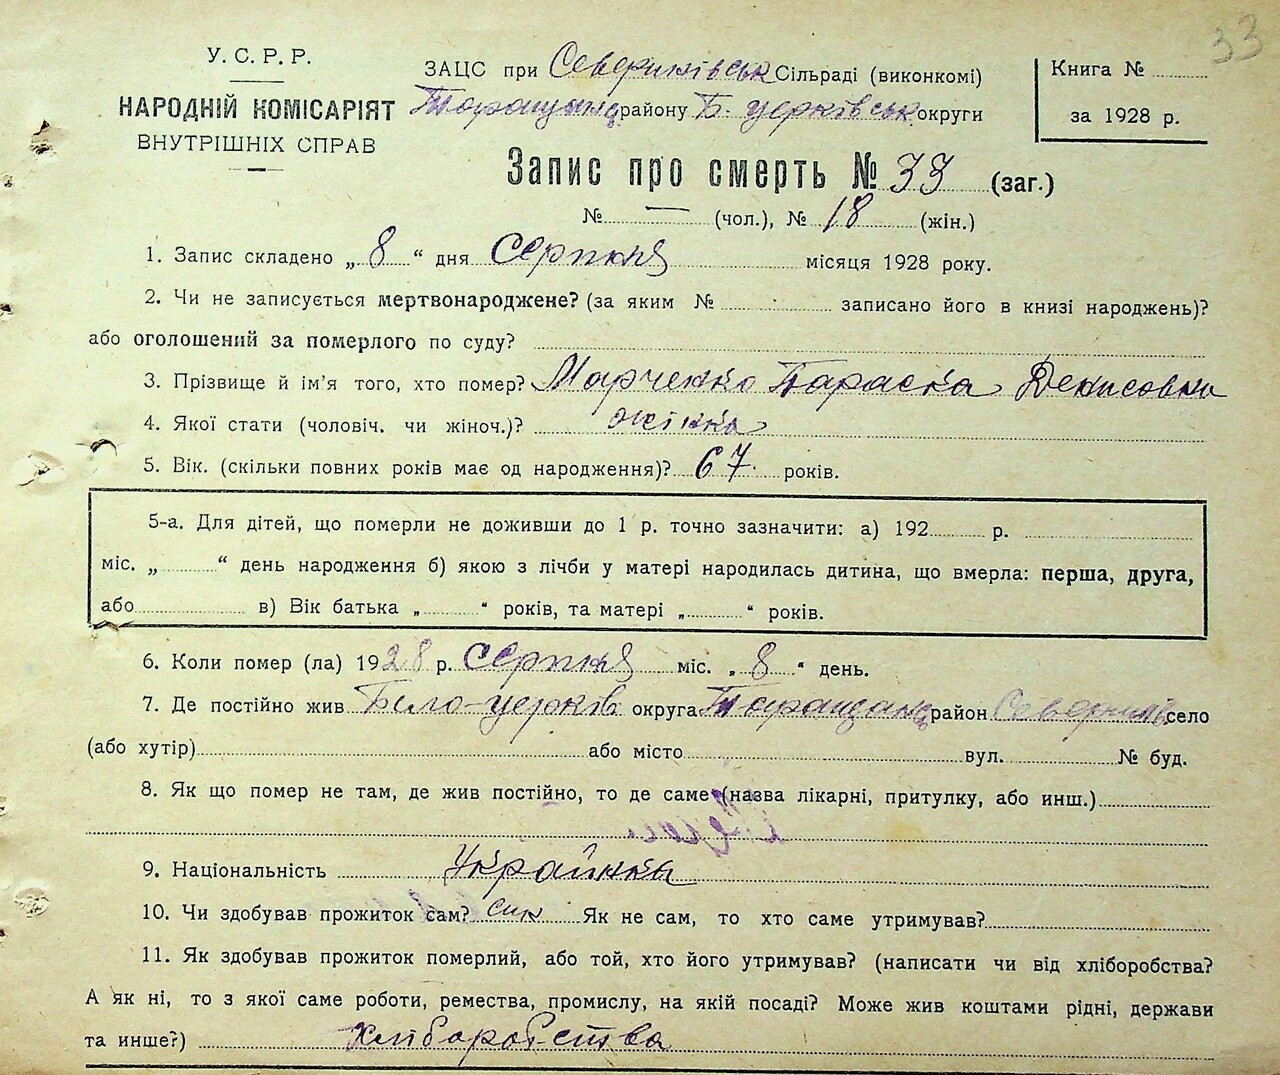 33
У. С. Р. Р.
НАРОДНІЙ КОМІСАРІЯТ
ВНУТРІШНІХ СПРАВ
ЗАЦС при Северинівськ Сільраді (виконкомі)
Таращанс. району Б. церківськ округи
Книга №
за 1928 р.
Запис про смерть № 33 (заг.)
№ — (чол.), № 18 (жін.)
1. Запис складено „ 8 “ дня Серпня місяця 1928 року.
2. Чи не записується мертвонароджене? (за яким № записано його в книзі народжень)?
або оголошений за померлого по суду?
3. Прізвище й ім'я того, хто помер? Марченко Параска Денисовна
4. Якої стати (чоловіч. чи жіноч.)? жінка
5. Вік. (скільки повних років має од народження)? 67 років.
5-а. Для дітей, що померли не доживши до 1 р. точно зазначити: а) 192 р.
міс. „ “ день народження б) якою з лічби у матері народилась дитина, що вмерла: перша, друга,
або в) Вік батька „ “ років, та матері „ “ років.
6. Коли помер (ла) 1928 р. серпня міс. „ 8 “ день.
7. Де постійно жив Біло-церків округа Таращанс район Северинів. село
(або хутір) або місто вул. № буд.
8. Як що помер не там, де жив постійно, то де саме (назва лікарні, притулку, або инш.)
9. Національність Українка
10. Чи здобував прожиток сам? Як не сам, то хто саме утримував?
11. Як здобував прожиток померлий, або той, хто його утримував? (написати чи від хліборобства?
А як ні, то з якої саме роботи, ремества, промислу, на якій посаді? Може жив коштами рідні, держави
та инше?) Хліборобства